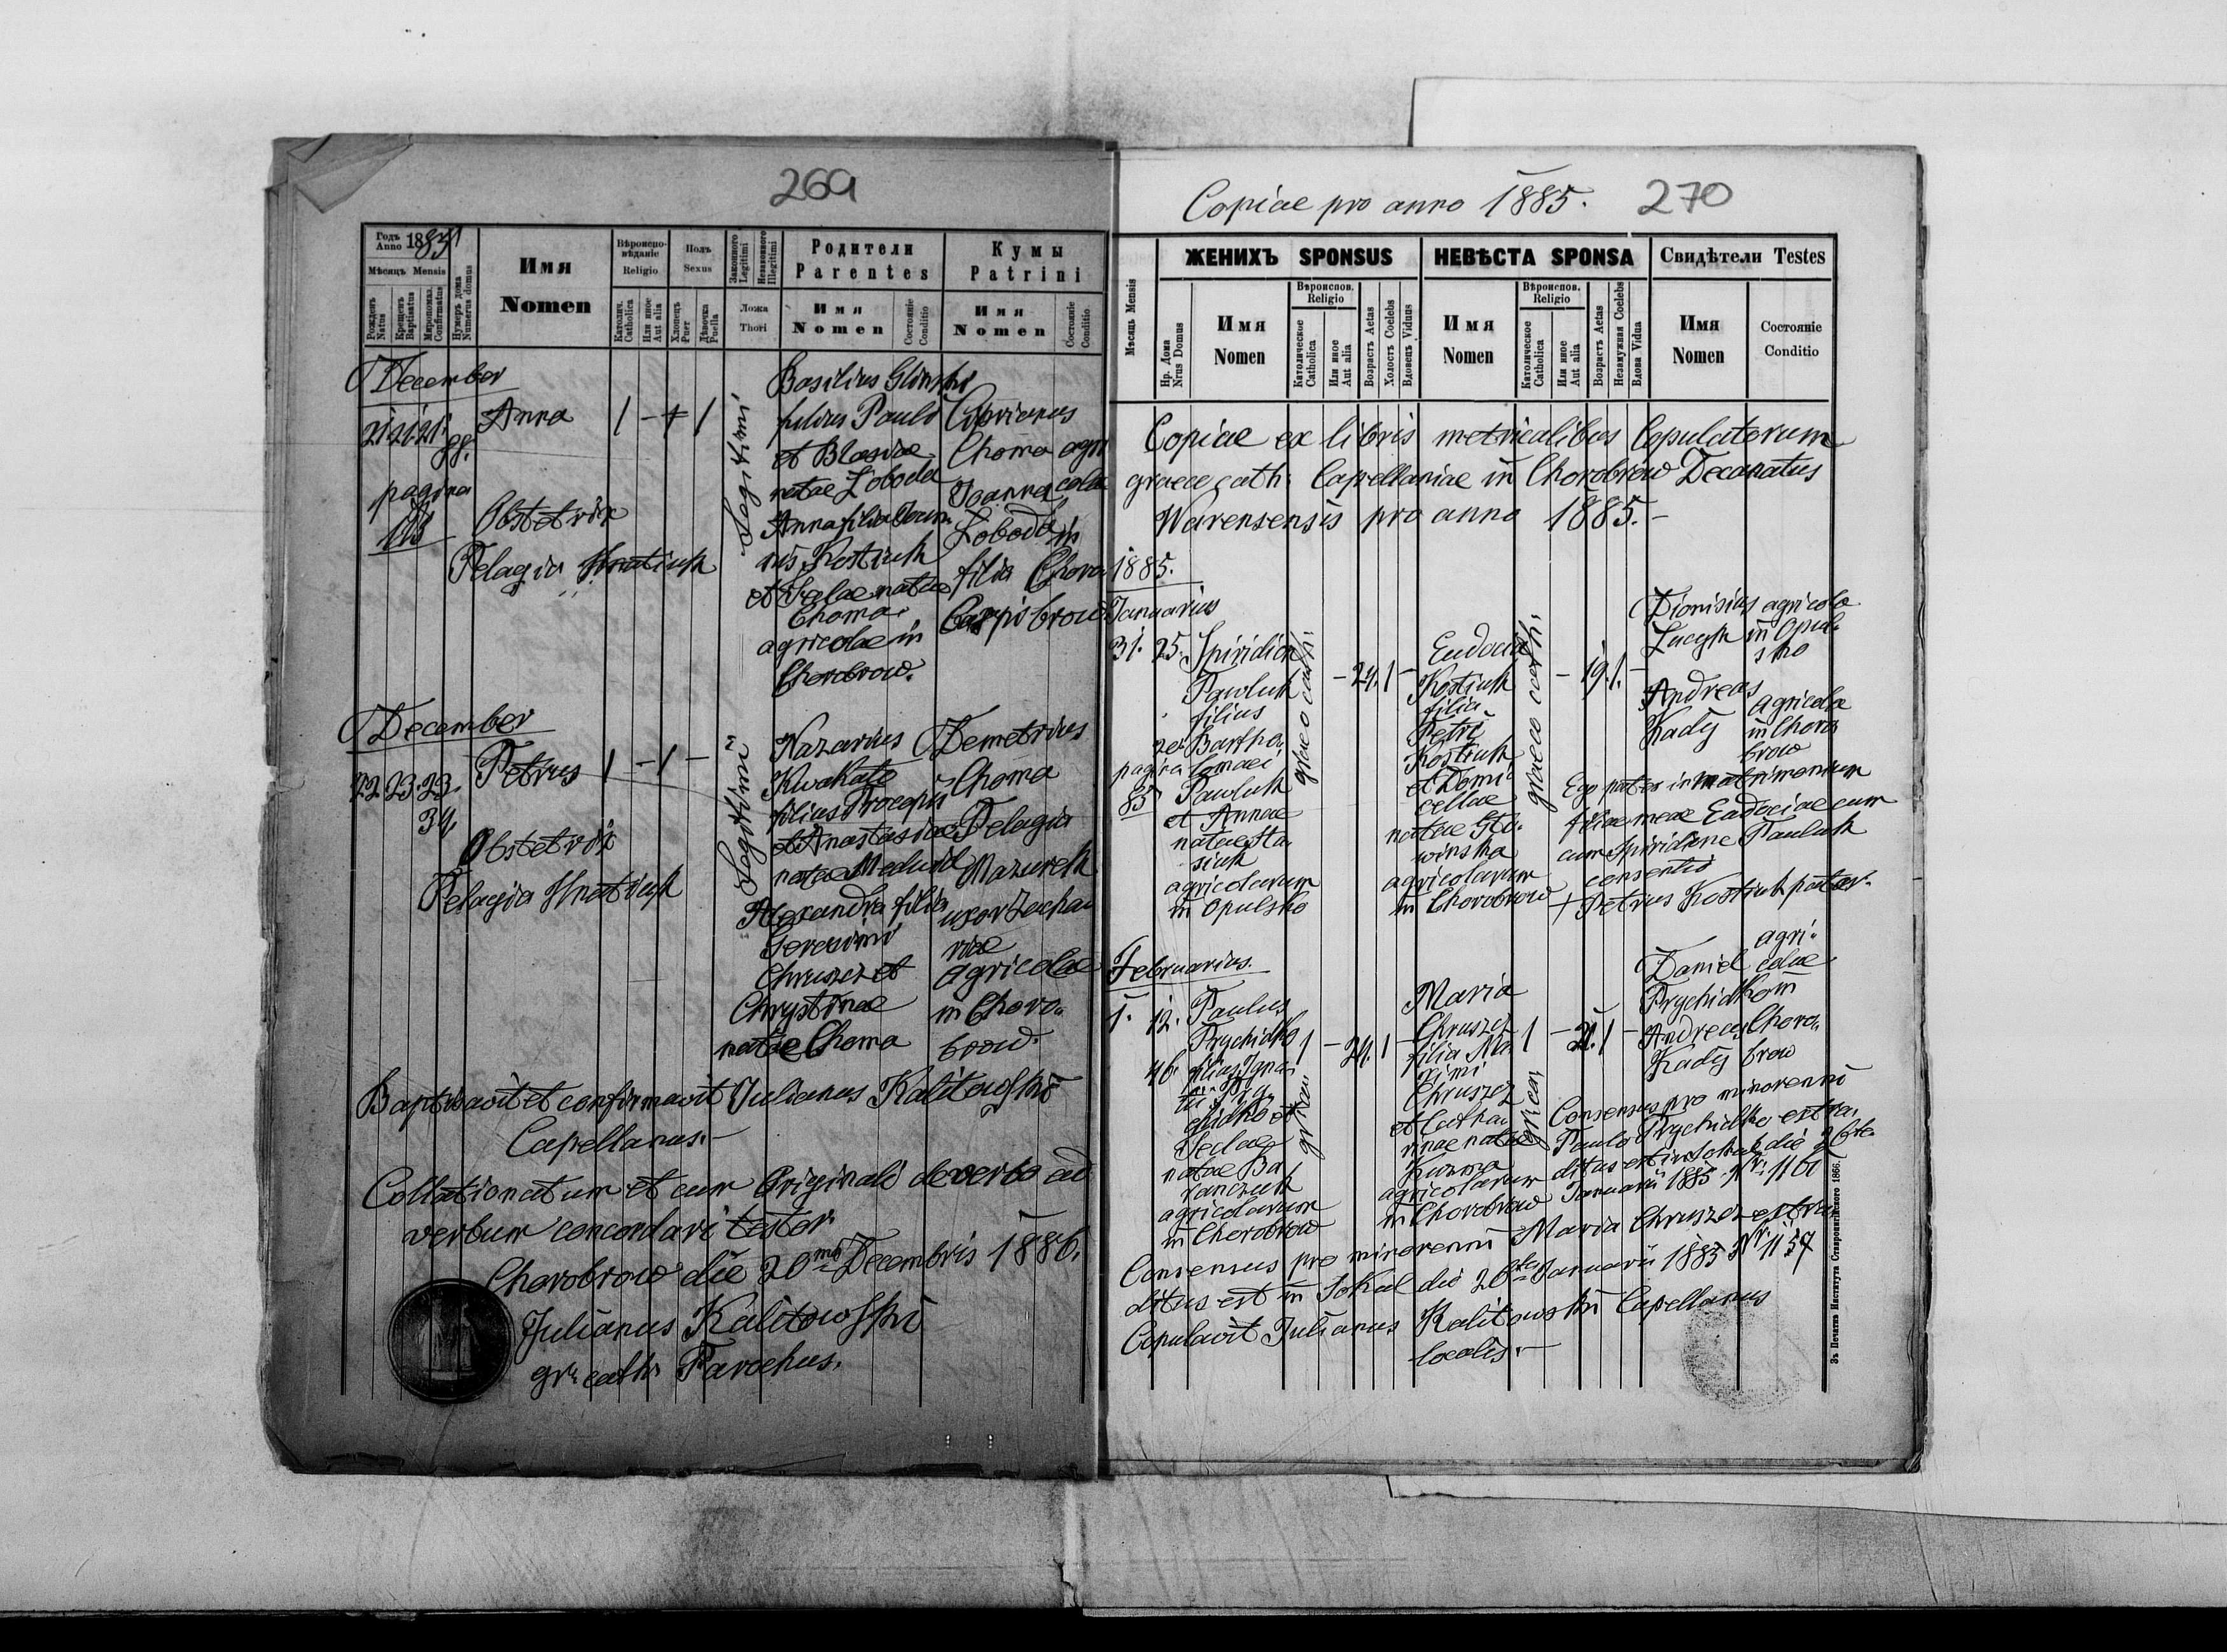 269
Годъ Anno 1885
Мѣсяцъ Mensis
Рожденъ Natus
Крещенъ Baptisatus
Миропомаз. Confirmatus
Нумеръ дома Numerus domus
Имя
Nomen
Вѣроиспо-
вѣданіе
Religio
Католич. Catholica
Или иное Aut alia
Полъ
Sexus
Хлопецъ Puer
Дѣвочка Puella
Законного Legitimi
Незаконного Illegitimi
Ложа
Thori
Родители
Parentes
Имя
Nomen
Состояніе Conditio
Кумы
Patrini
Имя
Nomen
Состояніе Conditio.
December
21 21 21. 99.
Anna
1 - + 1
Legitimi
pagina
118
Obstetrix
Pelagia Hnatiuk
Basilius Glinski
filius Pauli
et Blasiae
natae Łoboda
Anna filia
Kostiuk
et Teclae natae
Choma
agricolae in
Chorobrow.
Ciprianus
Choma agri
Joanna colae
Łoboda in
filia Choro
Carpi brow
December
22 23. 23.
34.
Petrus
1 - 1 -
Legitimi
Obstetrix
Pelagia Hnatiuk
Nazarius
Kwakato
filius Procopii
et Anastasiae
natae Meduid
Alexandra filia
Gerasimi
Chruszcz et
Chrystinae
natae Choma
Demetrius
Choma
Pelagia
Mazurek
uxor Zacha
riae
agricolae
in Choro
brow.
Baptisavit et confirmavit Julianus Kalitowski
Capellanus.
Collationatum et cum Originali de verbo ad
verbum concordari testor.
Chorobrow die 20 Decembris 1886.
Julianus Kalitowski
gr. cath. Parochus.
Copiae pro anno 1885.
270
Мѣсяцъ Mensis
ЖЕНИХЪ SPONSUS
Нр. Дома Nrus Domus
Имя
Nomen
Вѣроиспов.
Religio
Католическое Catholica
Или иное Aut alia
Возрастъ Aetas
Холостъ Coelebs
Вдовецъ Viduus
НЕВѢСТА SPONSA
Имя
Nomen
Вѣроиспов.
Religio
Католическое Catholica
Или иное Aut alia
Возрастъ Aetas
Незамужная Coelebs
Вдова Vidua
Свидѣтели Testes
Имя
Nomen
Состояніе
Conditio
Copiae ex libris metricalibus Copulatorum
graece cath: Capellaniae in Chorobrow Decanatus
Warensensis pro anno 1885.-
1885.
Januarius
31. 25.
pagina
85
Spiridion
Pawluk
filius
Bartho
lomaei
Pawluk
et Annae
natae Sta
siuk
agricolarum
in Opulsko
graeco cath:
- 24. 1 -
Eudocia
Kostiuk
filia
Petri
Kostiuk
et Domi
cellae
natae Gli
winska
agricolarum
in Chorobrow
graeco cath:
- 19. 1. -
Dionisius agricola
Łucyk in Opul
sko
Andreas agricola
Kadyj in Choro
brow
Ego pater in matrimonium
filiae meae Eudociae cum
cum Spiridione Pauluk
consentio
+ Petrus Kostiuk pater.
Februarius.
1. 12.
46
Paulus
Prychidko
filius Igna
tii Pry
chidko et
Teclae
natae Ba
ranczuk
agricolarum
in Chorobrow
1 - 24. 1 -
Maria
Chruszcz
filia Ma
ximi
Chruszcz
et Catha
rinae natae
Kuzma
agricolarum
in Chorobrow
1 - 21. 1 -
Daniel agri
colae
Prychidko in
Andreas Choro
Kadyj brow
Consensus pro minorenni
Paulo Prychidko extra
ditus est in Sokal die
Januarii 1885
Consensus pro minorenni Maria Chruszcz extra
ditus est in Sokal die 26 Januarii 1885 Nr. 1157
Copulavit Julianus Kalitowski Capellanus
localis.-
Зъ Печатнѣ Института Ставропигійского 1866.